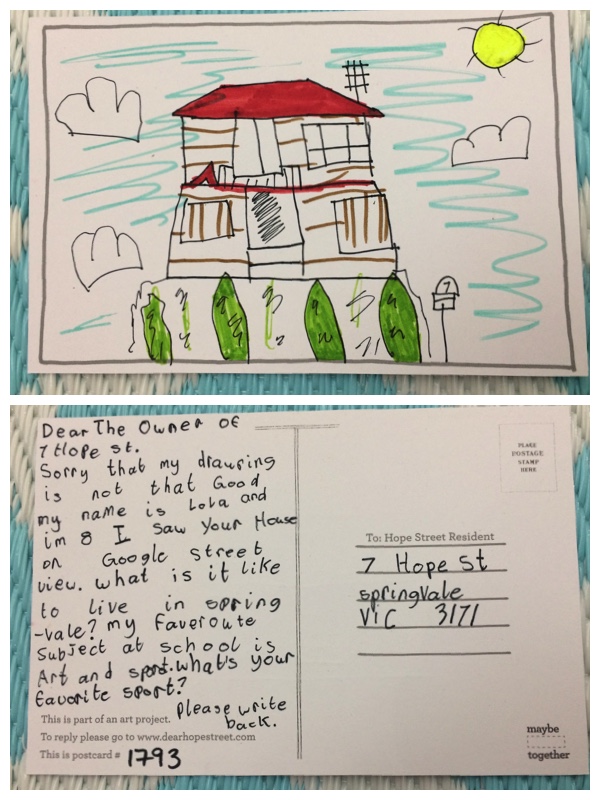 7
Dear The Owner of
7 Hope st.
Sorry that my drawing
is not that Good
my name is Lola and
im 8 I saw Your House
on Google street
view. what is it like
to live in spring
-vale? my Faveroute
Subject at school is
Art and sport. what's your
favorite sport?
Please write
back.
This is part of an art project.
To reply please go to www.dearhopestreet.com
This is postcard # 1793
PLACE
POSTAGE
STAMP
HERE
To: Hope Street Resident
7 Hope St
springvale
VIC 3171
maybe
together